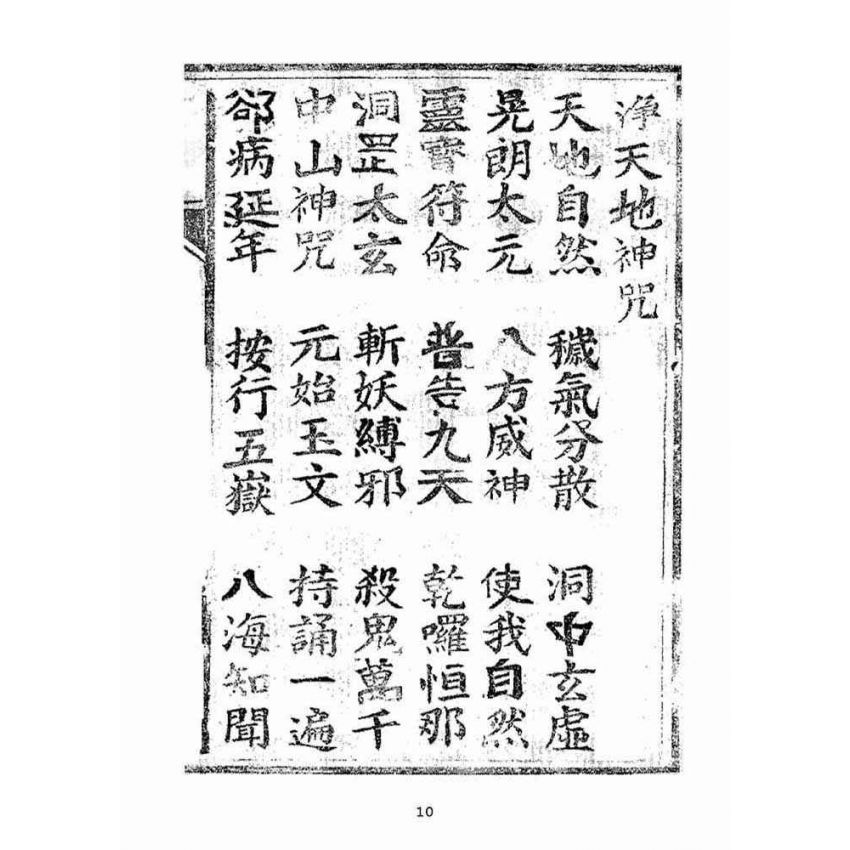 淨天地神咒
天地自然 穢氣分散 洞中玄虛
晃朗太元 八方威神 使我自然
靈寶符命 普告九天 乾囉恒那
洞罡太玄 斬妖縛邪 殺鬼萬千
中山神咒 元始玉文 持誦一遍
郤病延年 按行五嶽 八海知聞
10